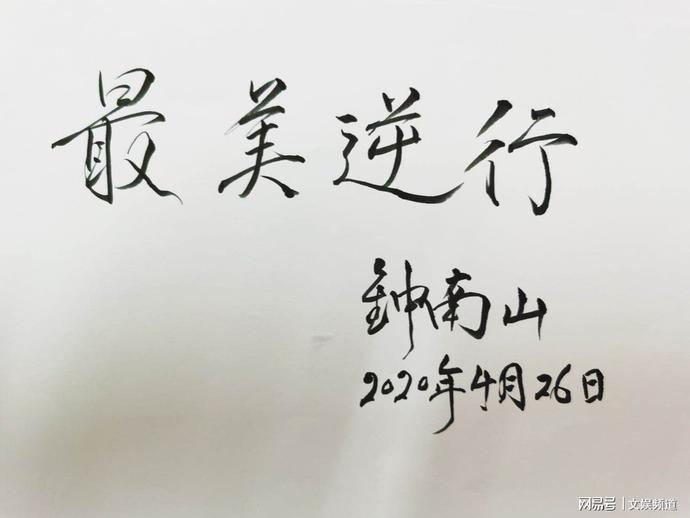 最美逆行
钟南山
2020年4月26日
网易号 | 文娱频道